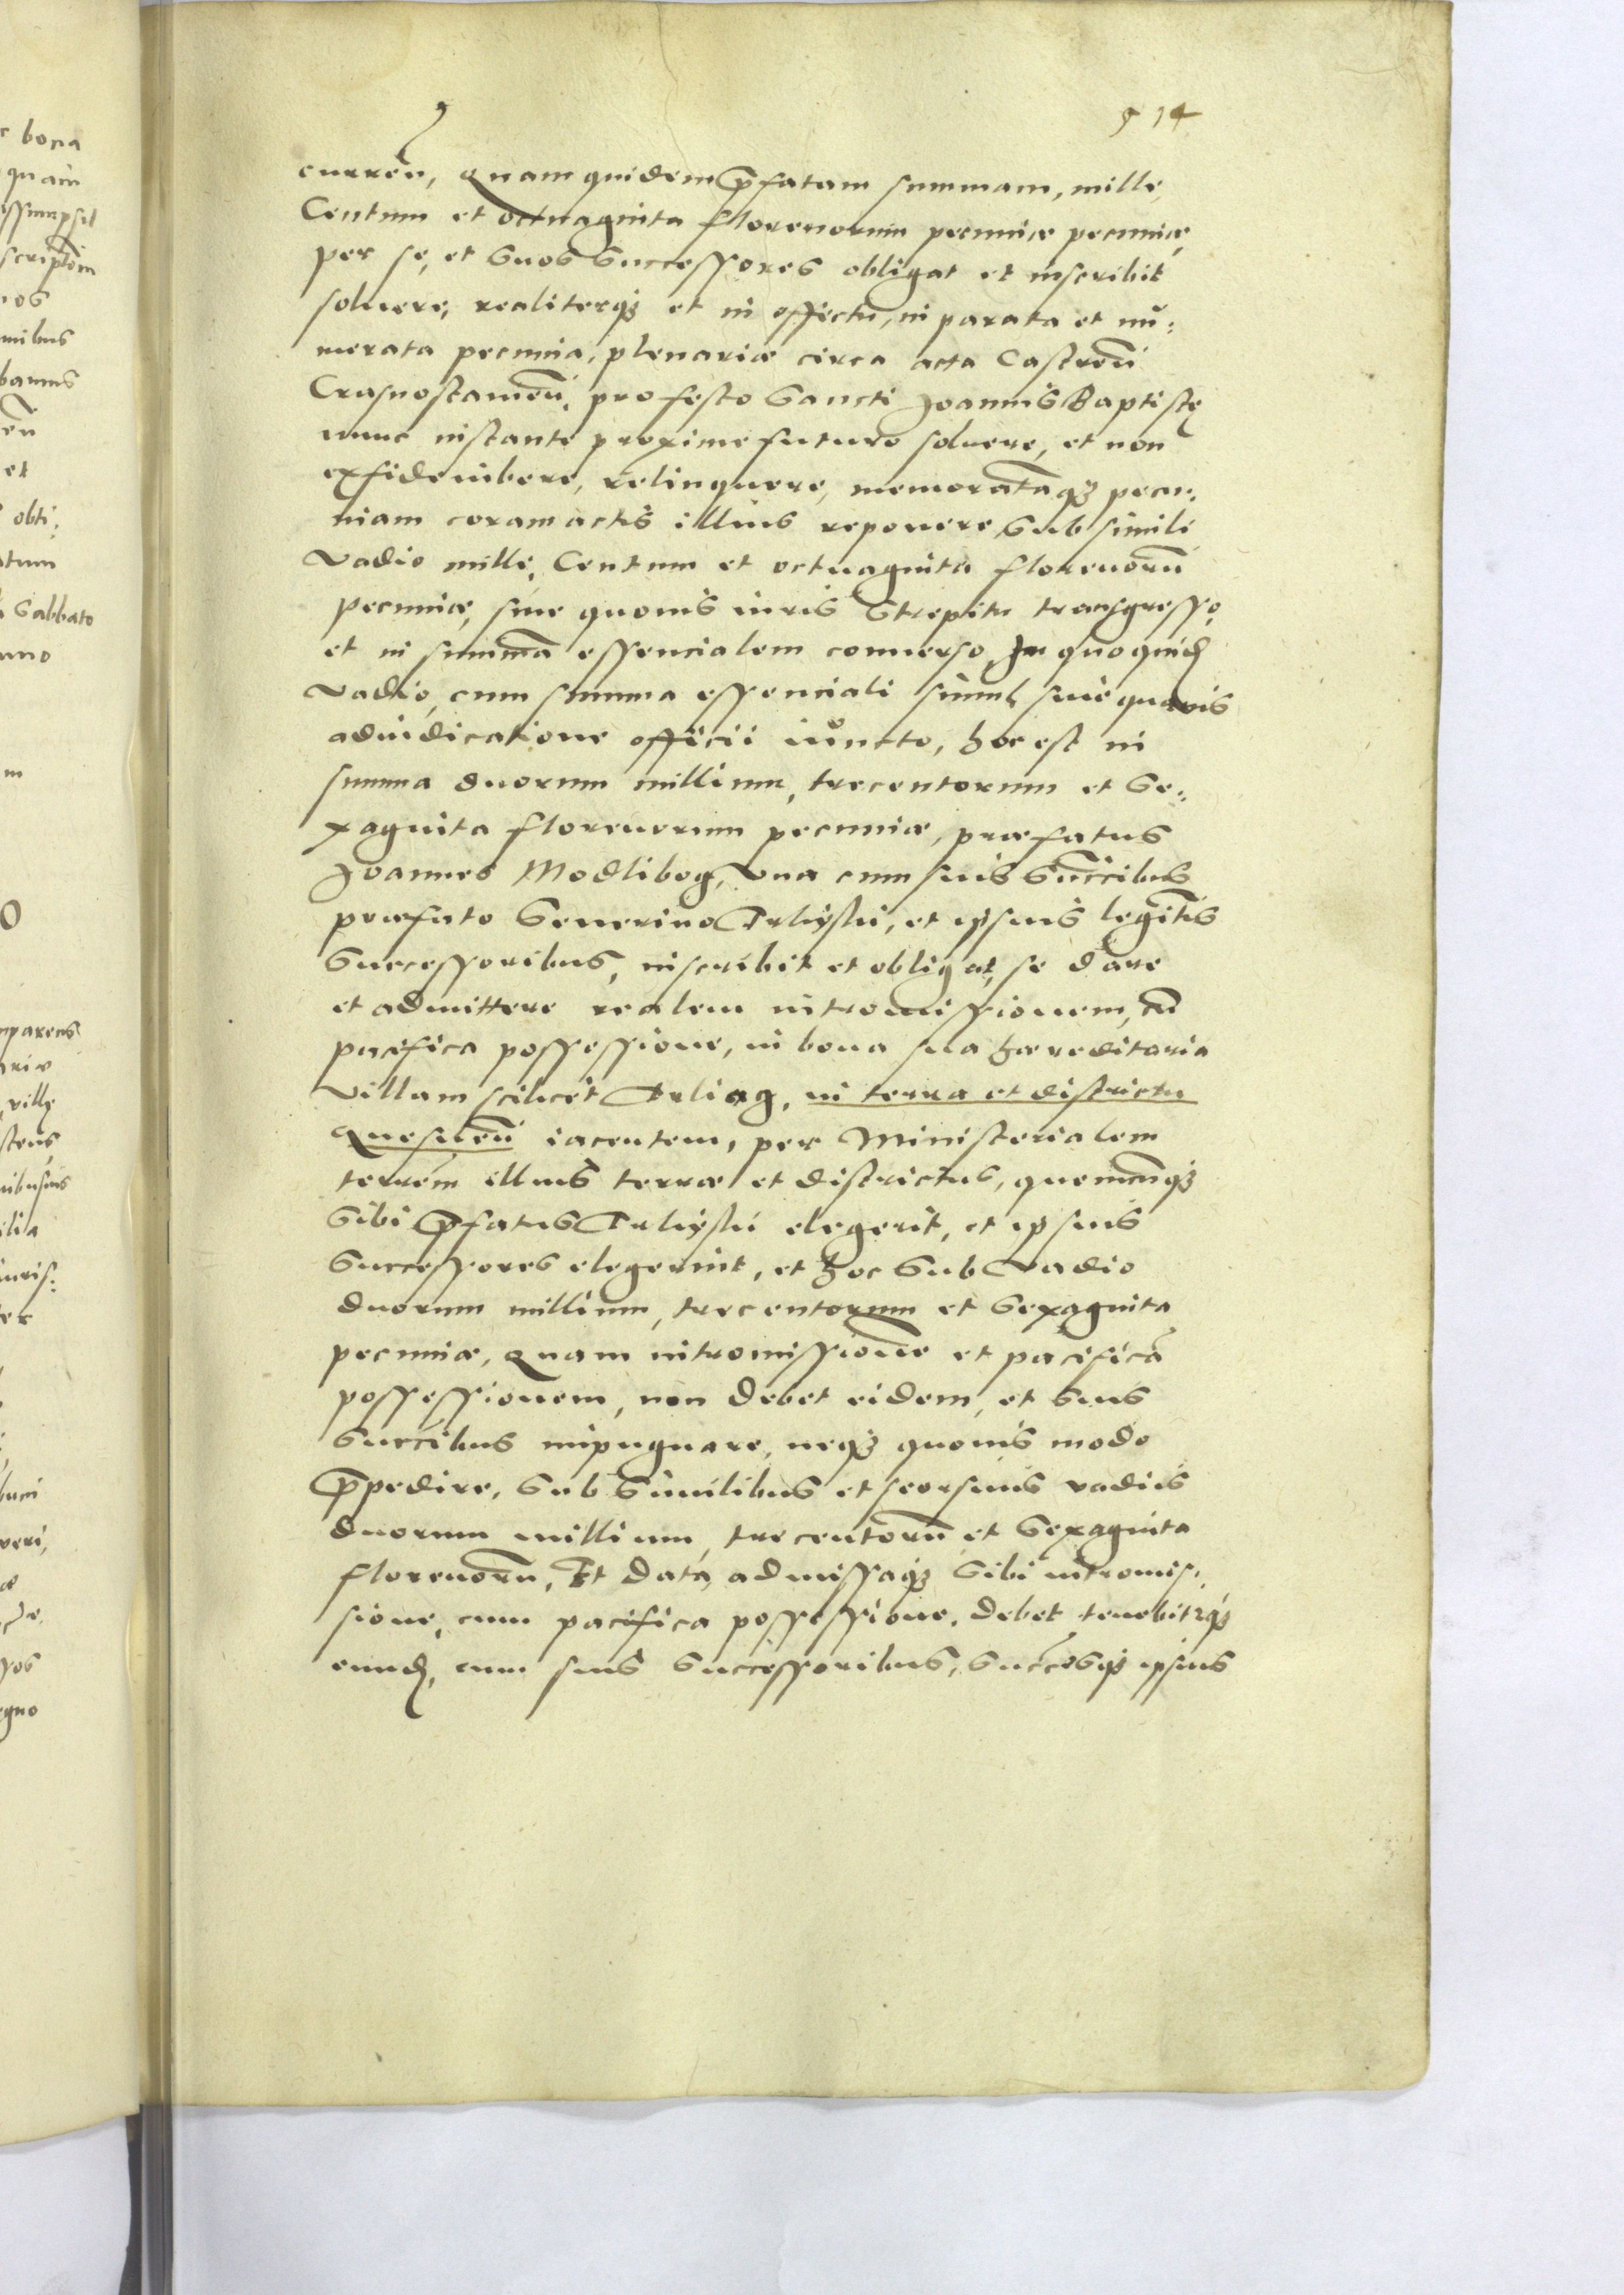 514
curreñ, Quam quidem p̄fatam summam, mille,
Centum et octuaginta florenorum pecuniæ pecuniæ,
per se, et suos Successores obligat et inscribit
soluere, realiterq₃ et in effectu, in parata et nū:
merata pecunia, plenariæ circa acta Castreñ
Crasnostauieñ, pro festo Sancti Joannis Baptistę
nunc instante proxime futuro soluere, et non
exfideiubere, relinquere, memoratāq₃ pecu:
niam coram actis illius reponere, Sub simili
Vadio mille, Centum et octuaginta florenorū
pecuniæ, sine quouis iuris Strepitu transgresso,
et in summā essencialem conuerso, In quoquid
vadio, cum summa essenciali simul sine quauis
adiudicatione officii iuncto, hoc est in
summa duorum millium, trecentorum et Se:
xaginta florenorum pecuniæ, præfatus
Joannes Modlibog, Vna cum suis Succ̄ribus
præfato Seuerino, et ipsius legit̄is
Successoribus, inscribit et obligat, se dare
et admittere realem intromissionem, cū
pacifica possessione, in bona sua hæreditaria
Villam scilicet, in terra et districtu
iacentem, per Ministerialem
terrēm illius terræ et districtus, quemcunq₃
Sibi p̄fatus elegerit, et ipsius
Successores elegerint, et hoc Sub Vadio
duorum millium, trecentorum et Sexaginta
pecuniæ, Quam intromissionē et pacificā
possessionem, non debet eidem, et Suis
Succ̄ribus impugnare, neq₃ quouis modo
p̄pedire, Sub Similibus et seorsiuis vadiis
duorum millium, trecentorū et Sexaginta
florenorū, Et data, admissaq₃ Sibi intromis:
sione, cum pacifica possessione, debet tenebiturq₃
eund, cum suis Successoribus, Succ̄esq₃ ipsius